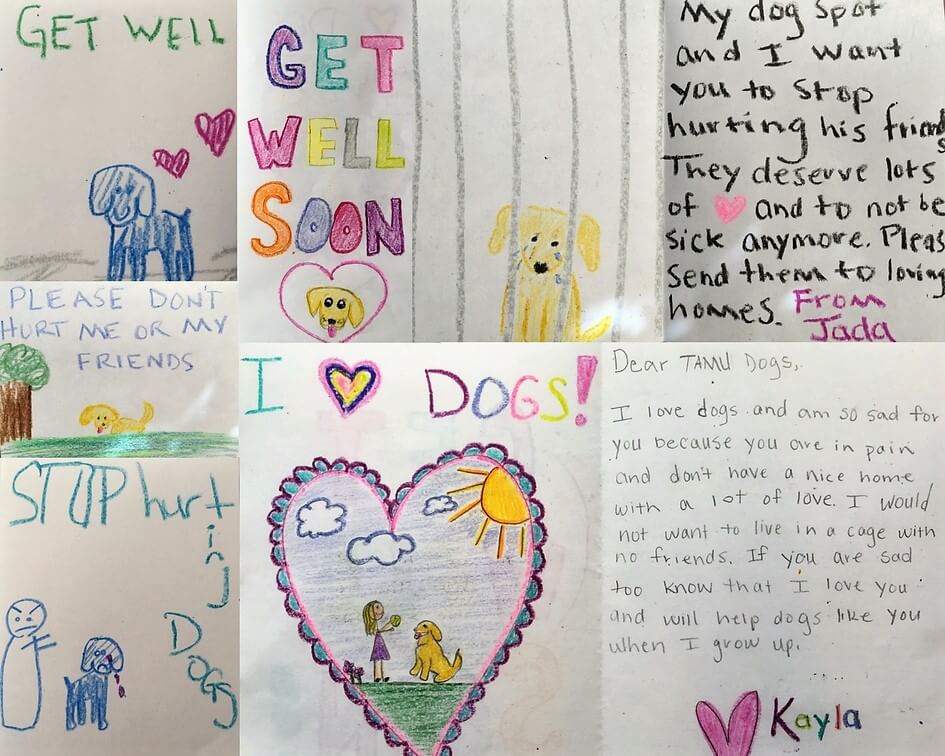 GET WELL
GET
WELL
SOON
My dog Spot
and I want
you to stop
hurting his friends
They deserve lots
of and to not be
sick anymore. Pleas
send them to loving
homes. From
Jada
PLEASE DON'T
HURT ME OR MY
FRIENDS
STOP hurting
DOGS
I DOGS!
Dear TAMU Dogs,
I love dogs and am so sad for
you because you are in pain
and don't have a nice home
with a lot of love. I would
not want to live in a cage with
no friends. If you are sad
too know that I love you
and will help dogs like you
when I grow up.
Kayla